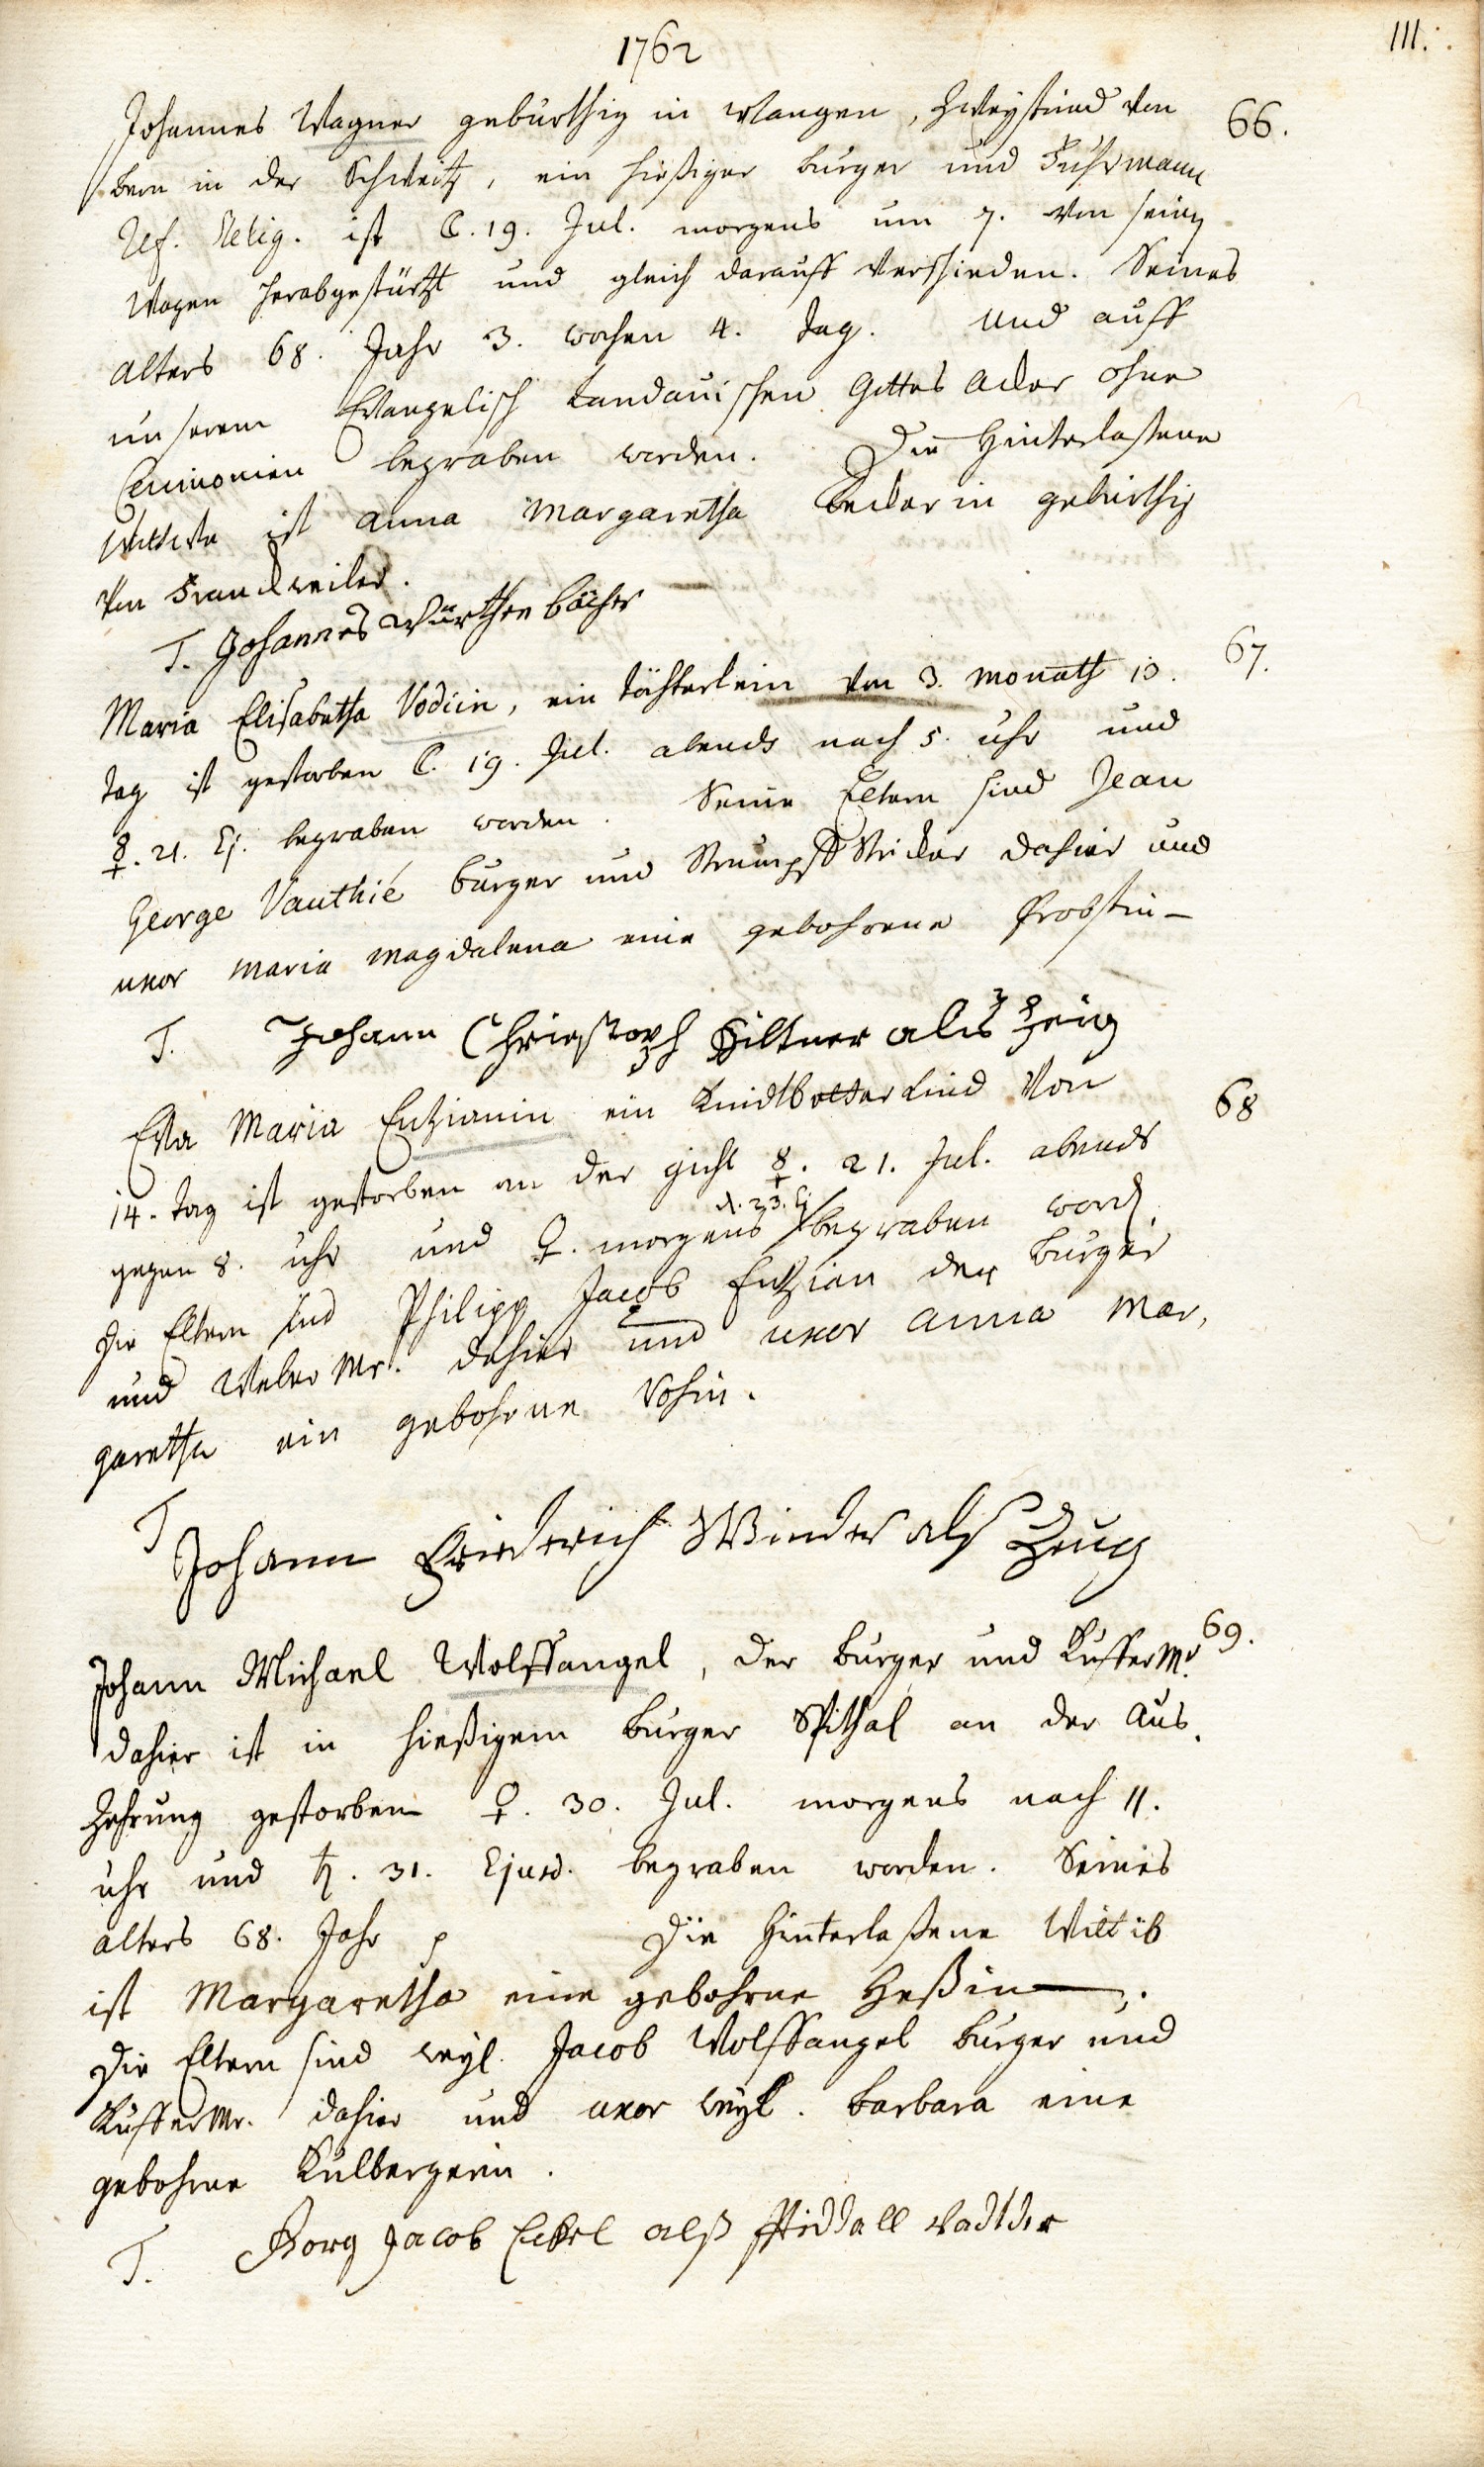 1762
111.
Johannes Wagner gebürthig in Wangen, Zweystund von 66.
bern in der Schweitz, ein hießiger burger und Fuhrmann
Ref. Relig. ist ☾. 19. Jul. morgens um 7. von sein
Wagen herabgestürtzt und gleich darauff verschieden. Seines
alters 68. Jahr 3. wochen 4. tag. Und auff
unserem Evangelisch Landauischen Gottes acker ohne
Ceremonien begraben worden. Die Hinterlaßene
Wittwe ist anna Margaretha Beckerin gebürthig
von Franckweiler.
T. Johannes Würthenbächer
Maria Elisabetha Vodiin, ein töchterlein von 3. monath 10. 67.
tag ist gestorben ☾. 19. Jul. abends nach 5. uhr und
☿. 21. Ej. begraben worden. Seine Eltern sind Jean
George Vauthié burger und Strumpff Stricker dahier und
uxor maria magdalena eine gebohrene Probstin-
T. Johann Christoph Hiltner als Zeig
Eva Maria Entzianin ein Kindtbetterkind von 68
14. tag ist gestorben an der gicht ☿. 21. Jul. abends
d. 23. Ej
gegen 8. uhr und ♀. morgens begraben word.
Die Eltern sind Philipp Jacob Entzian der burger
und Weber Mr. dahier und uxor anna Mar,
garetha ein gebohrne Vohin.
T Johann Friederich Winder als Zeug
Johann Michael Wolffangel, der burger und Küffer Mr 69.
dahier ist in hießigem burger Spithal an der Aus,
zehrung gestorben ♀. 30. Jul. morgens nach 11.
uhr und ♄. 31. Ejusd. begraben worden. Seines
alters 68. Jahr p Die hinterlaßene Wittib
ist Margaretha eine gebohrne Heßin.
Die Eltern sind weyl. Jacob Wolffangel burger und
Küffer Mr. dahier und uxor weyl. barbara eine
gebohrne Külbergerin.
T. Gorg Jacob Eckel alß Spiddall Vadtder